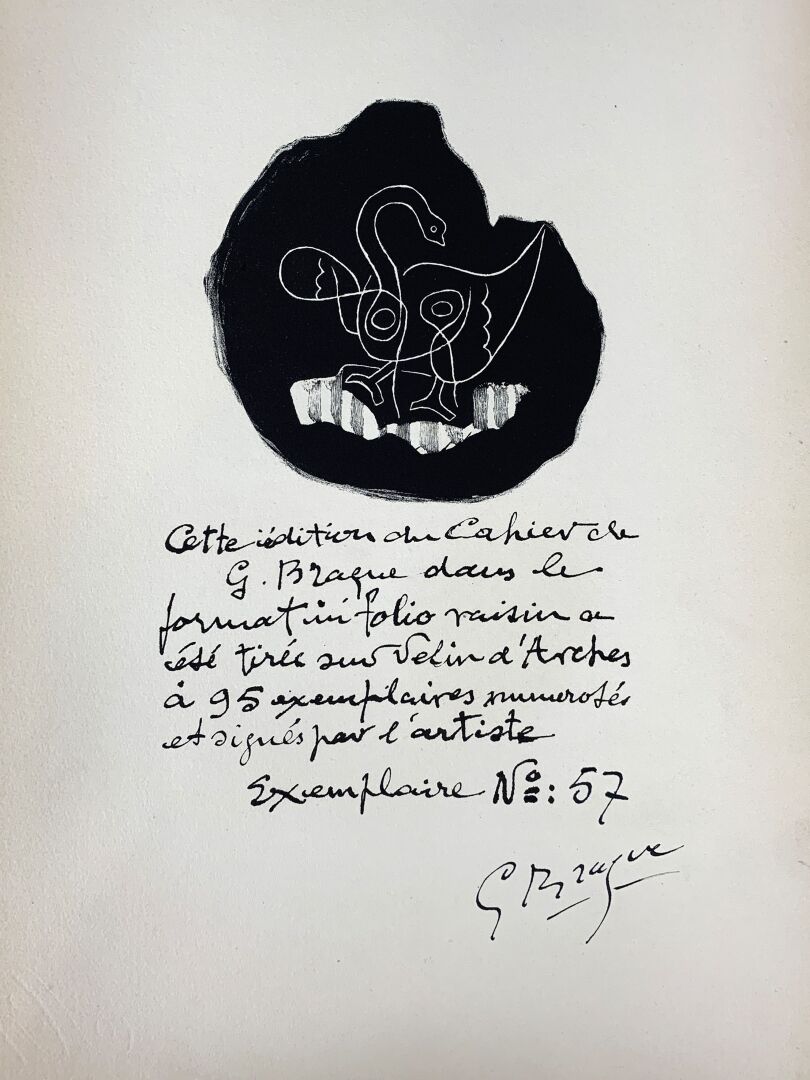 Cette édition du Cahier de
G. Braque dans le
format in folio raisin a
été tirée sur Velin d'Arches
à 95 exemplaires numerotés
et signés par l'artiste
Exemplaire Nº: 57
G Braque